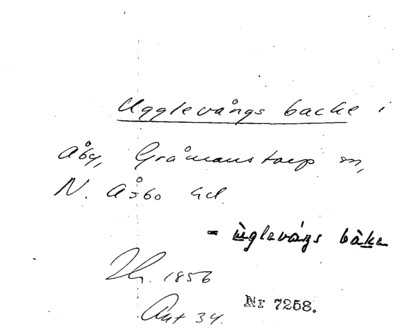 Ugglevångs backe i
Åby, Gråmanstorp sn,
N. Åsbo hd
- ùglevángs bàke
Th. 1856
Ant 34.
Nr 7258.